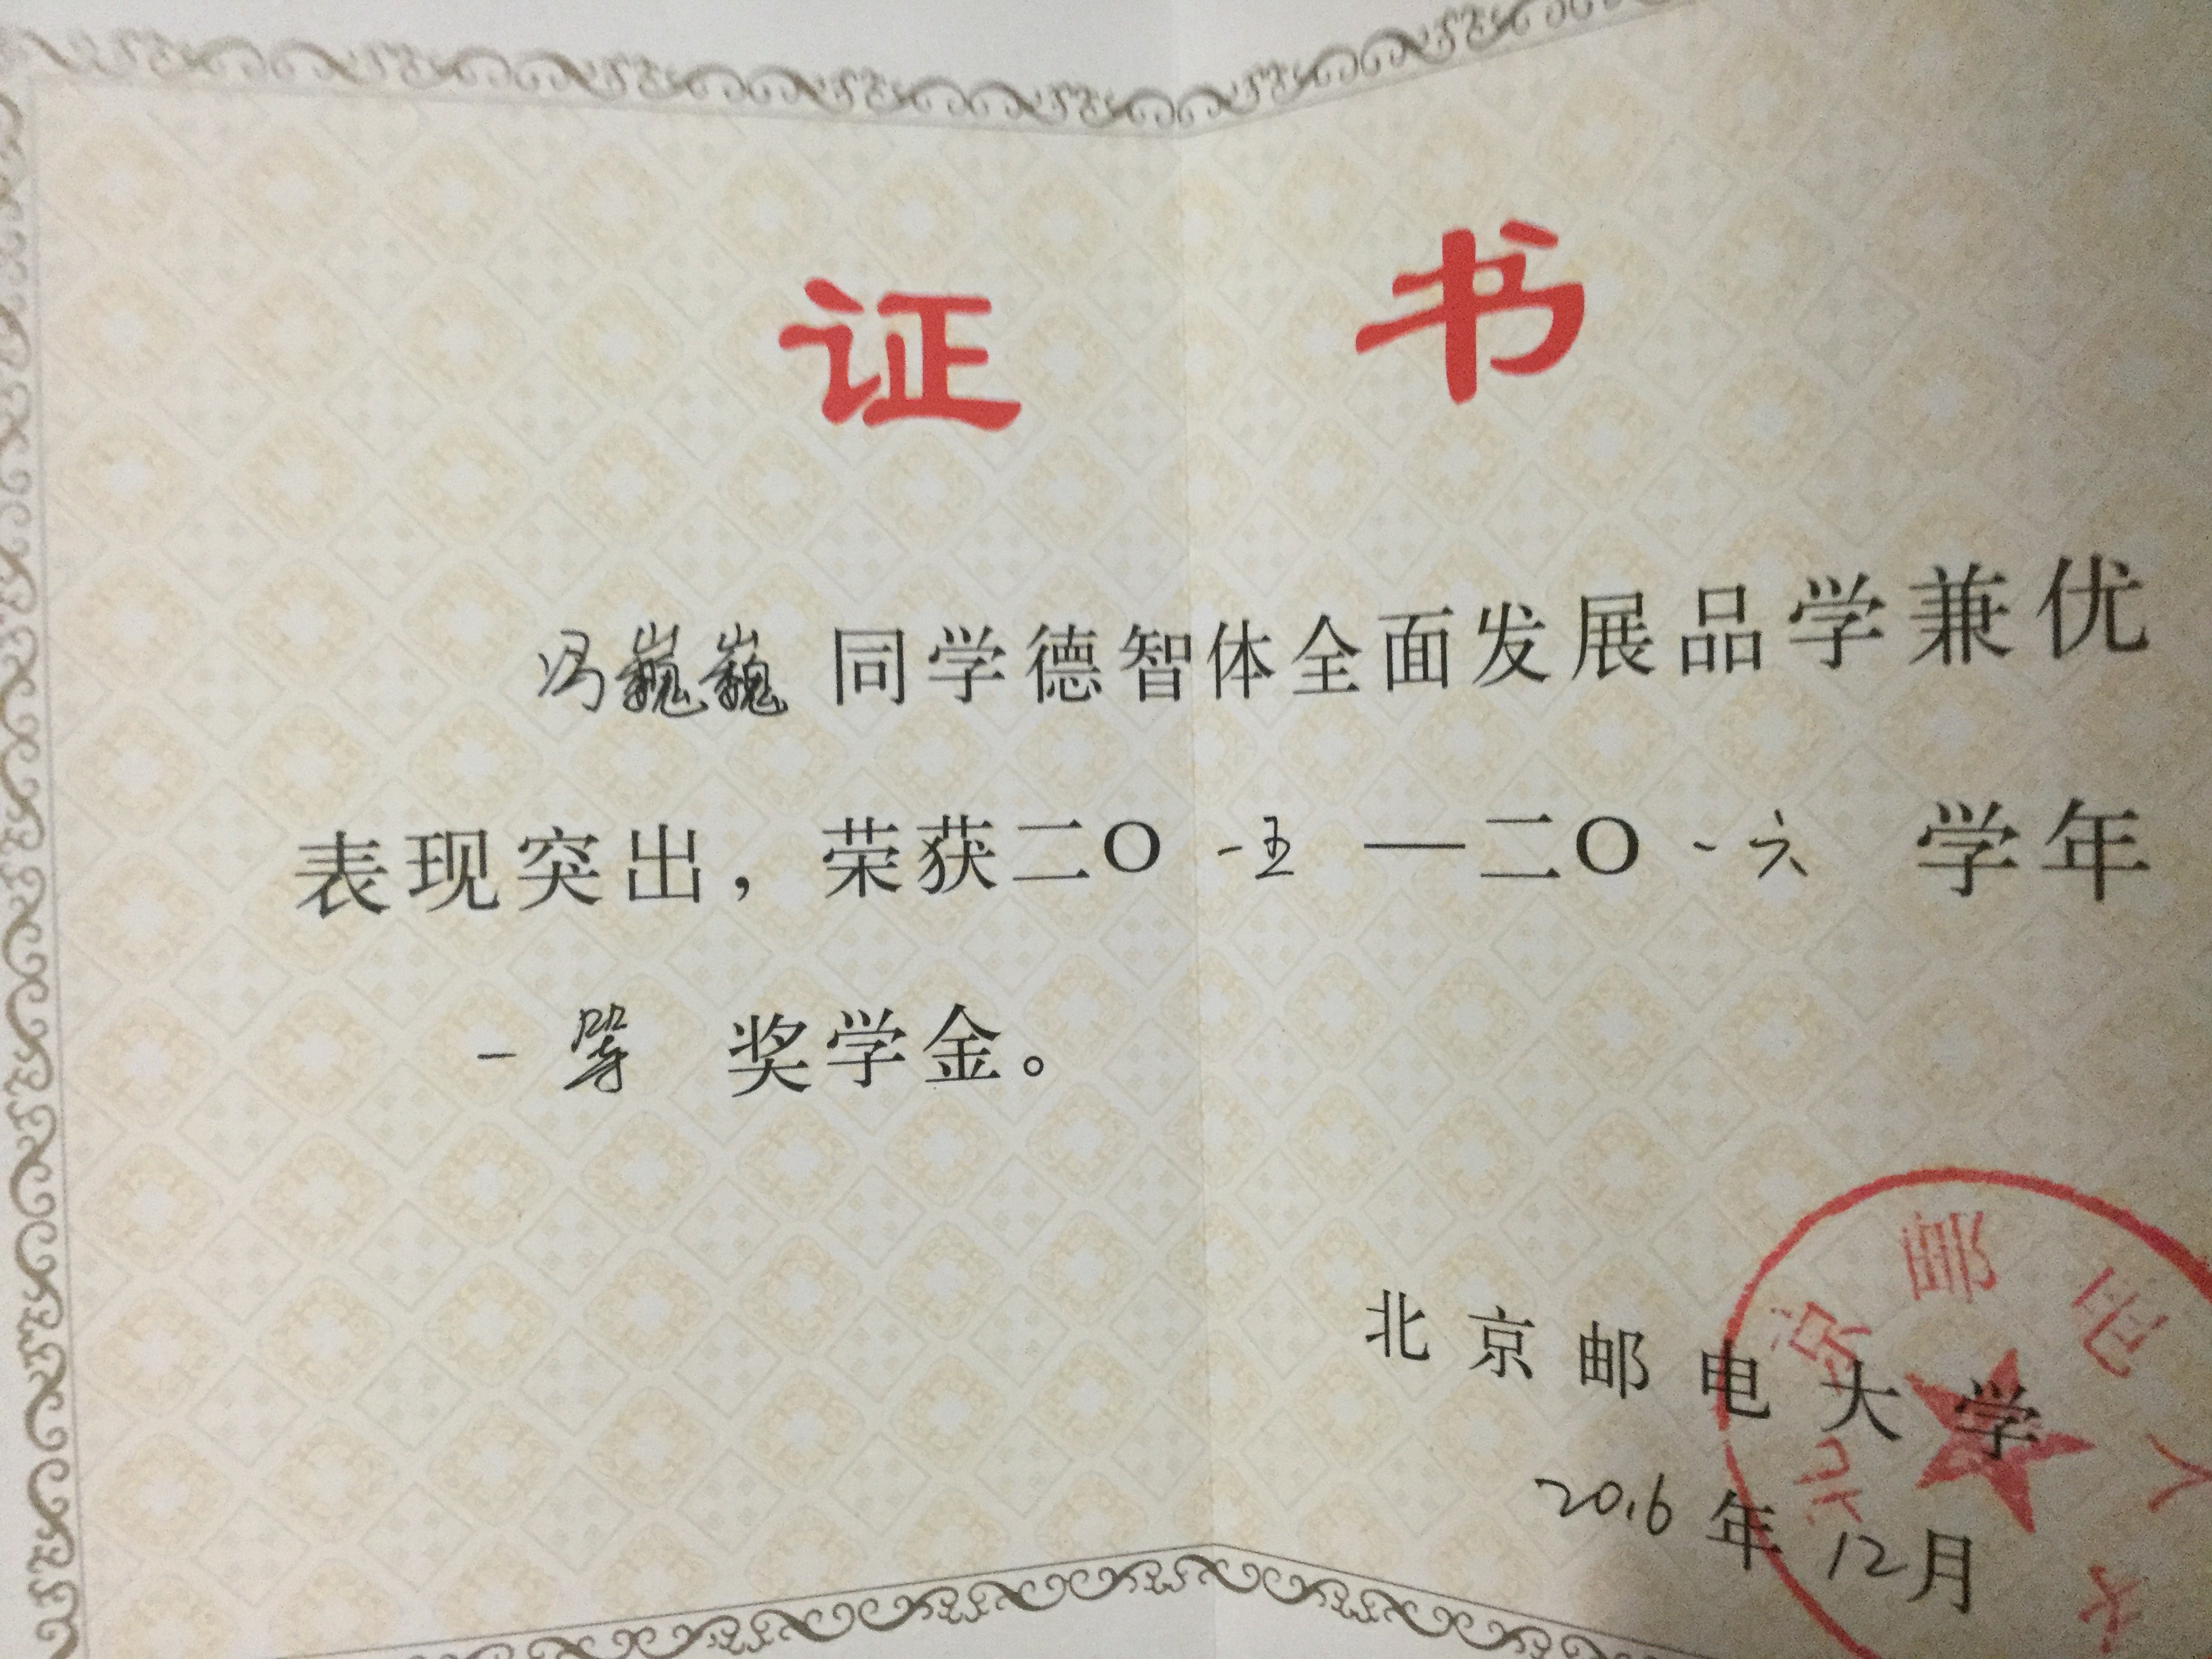 证 书
冯巍巍 同学德智体全面发展品学兼优
表现突出，荣获二O一五 — 二O一六 学年
一等 奖学金。
北京邮电大学
2016年12月
北京邮电大